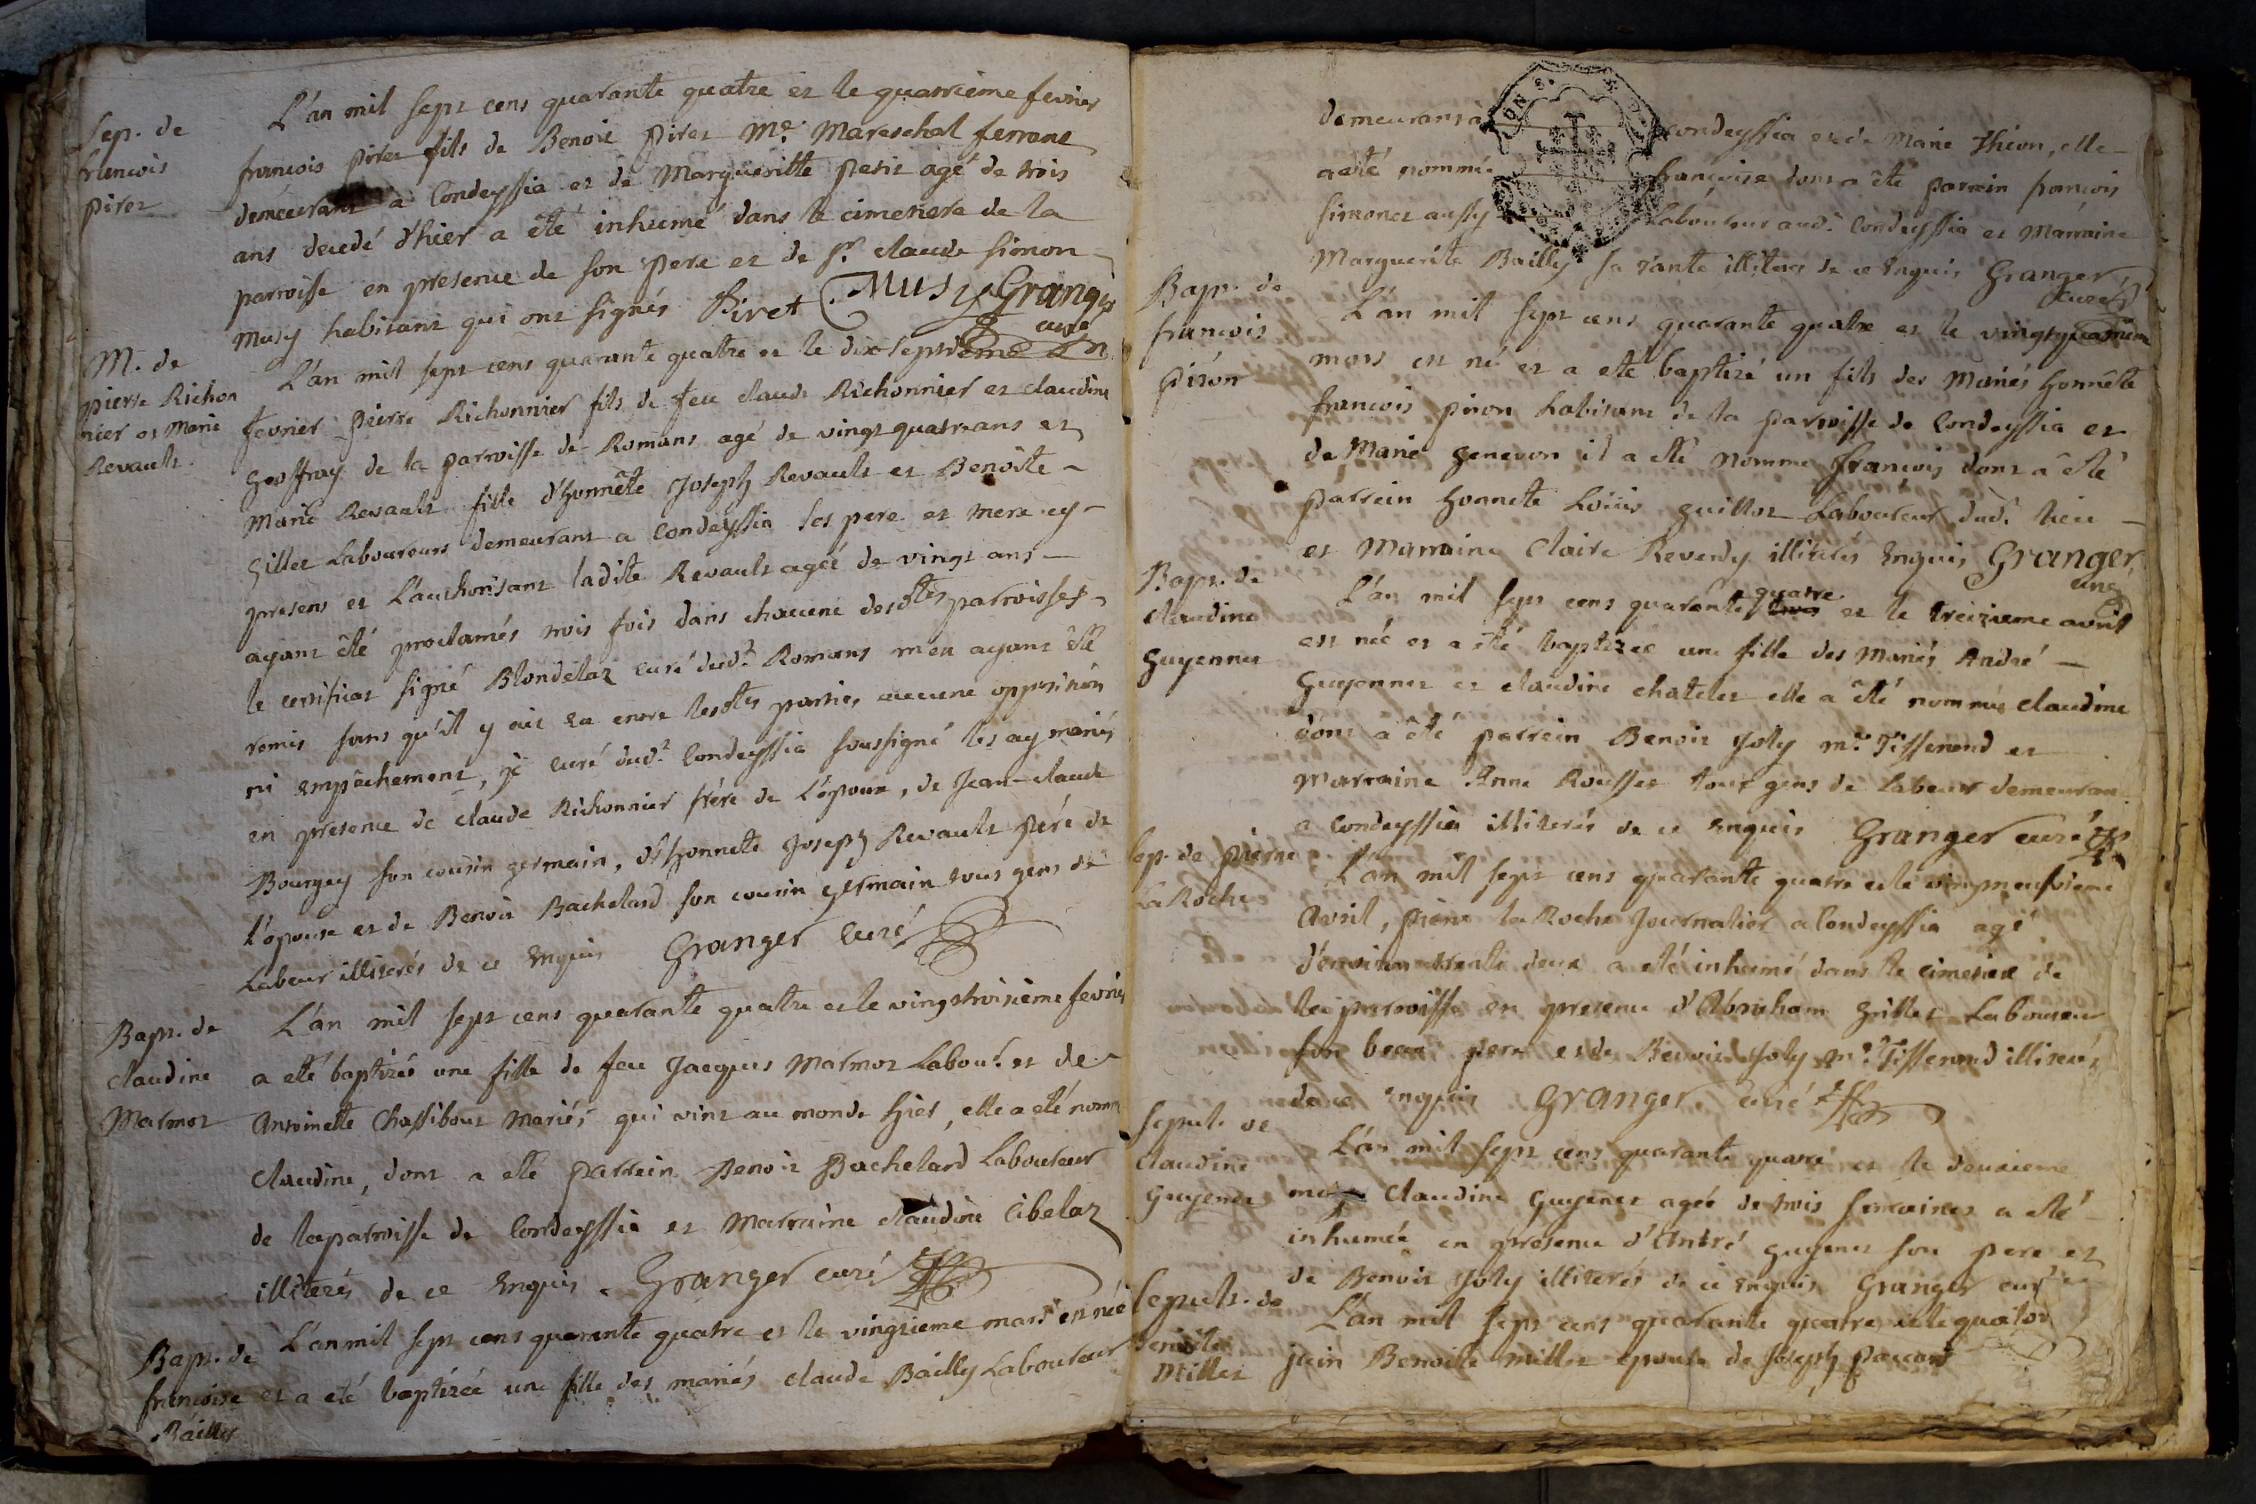 Sep. de
francois
pirer
L'an mil sept cens quarante quatre et le quatrieme fevrier
francois pirer fils de Benoit pirer Me. Mareschal ferrant
demeurant a Condeyssia et de Margueritte petit agé de trois
ans decedé d'hier a été inhumé dans le cimetiere de la
parroisse en presence de son pere et de Sr. claude simon
Musy habitant qui ont signés Piret Musy Granger
curé
M. de
pierre Richon
nier et Marie
Revault.
L'an mil sept cens quarante quatre et le dix septieme
fevrier pierre Richonnier fils de feu claude Richonnier et claudine
Geoffray de la parroisse de Romans agé de vingt quatre ans et
Marie Revault fille d'honnête Joseph Revault et Benoîte
Gillet Laboureurs demeurant a Condeyssia ses pere et mere cy
presens et L'authorisant ladite Revault agée de vingt ans
ayant été proclamés trois fois dans chacune desdtes parroisses
le certificat signé Blondelaz curé dudt. Romans m'en ayant été
remis sans qu'il y ait eu entre lesdtes parties aucune opposition
ni empêchement, je curé dudt. Condeyssia soussigné les ay mariés
en presence de claude Richonnier frére de l'époux, de Jean-claude
Bourgey son cousin germain, d'honnete Joseph Revault pére de
l'épouse et de Benoit Bachelard son cousin germain tous gens de
Labeur illiterés de ce Enquis Granger curé
Bapt. de
claudine
Marmot
L'an mil sept cens quarante quatre et le vingt troisième fevrier
a eté baptizée une fille de feu Jacques Marmot Labour. et de
Antoinette Chassibout Mariés qui vint au monde hier, elle a eté nomm
Claudine, dont a eté parrein Benoit Bachelard Laboureur
de la parroisse de Condeyssia et Marraine claudine Cibelaz
illiterés de ce Enquis. Granger curé
Bapt. de
francoise
Bailly
L'an mil sept cens quarante quatre et le vingtieme mars est née
et a eté baptizée une fille des mariés claude Bailly Laboureur
demeurant a Condeyssia et de Marie Thion, elle
a eté nommée françoise dont a été parrein francois
simonet aussy Laboureur audt. Condeyssia et Marraine
Marguerite Bailly sa tante illiterés de ce Enquis Granger
curé
Bapt. de
francois
piron
L'an mil sept cens quarante quatre et le vingtquatrieme
mars est né et a eté baptizé un fils des Mariés honnête
francois piron habitant de la parroisse de Condeyssia et
de Marie genevon il a eté nommé francois dont a été
parrein honnete Loüis guillot Laboureur dudt. lieu
et Marraine Claire Reverdy illiterés Enquis Granger
curé
Bapt. de
claudine
guyennet
L'an mil sept cens quarante quatre et le treizieme avril
est née et a été baptizée une fille des Mariés André
guyennet et claudine chatelet elle a été nommée claudine
dont a été parrein Benoit Joly me. Tisserend et
Marraine Anne Rousset tous gens de labeur demeurant
a Condeyssia illiterés de ce Enquis Granger curé
Sep. de pierre
La Roche
L'an mil sept cens quarante quatre et le vingtneufvieme
Avril, pierre la Roche Journalier a Condeyssia agé
d'environ trente deux a eté inhumé dans le cimetiere de
la parroisse en presence d'Abraham Grillet Laboureur
son beau pere et de Benoit Joly me. Tisserend illiterés
de ce Enquis Granger curé
Sepult. de
claudine
Guyenet
L'an mil sept cens quarante quatre et le deuxieme
may Claudine Guyenet agée de trois semaines a eté
inhumée en presence d'André guyenet son pere et
de Benoit Joly illiterés de ce Enquis Granger curé
Sepult. de
Benoite
Millet
L'an mil sept cens quarante quatre et le quator
juin Benoîte Millet epouse de Joseph